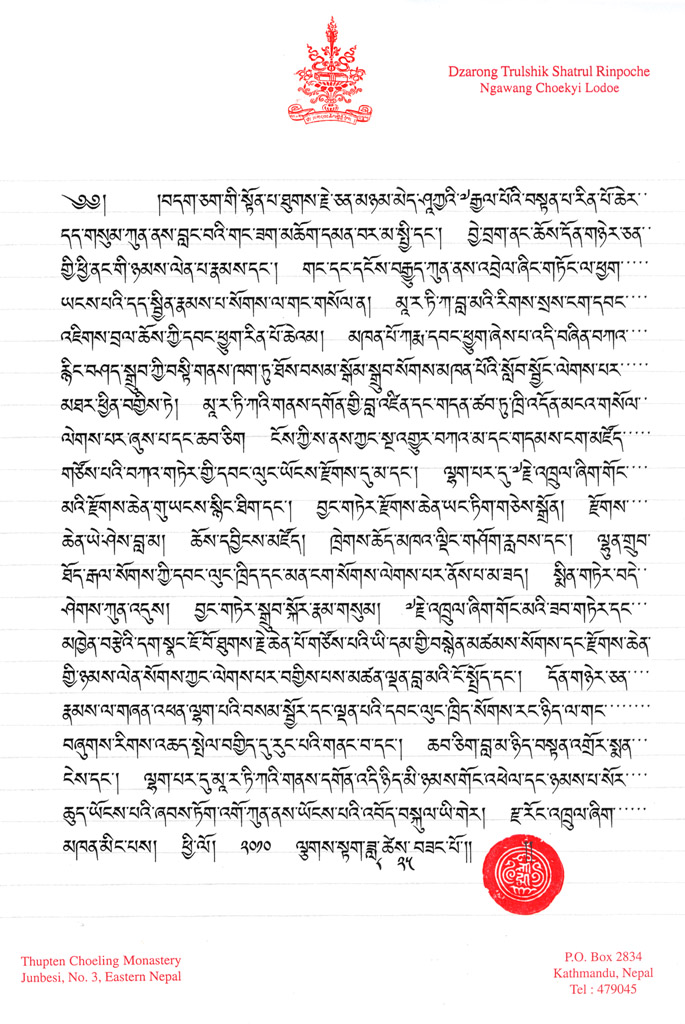 Dzarong Trulshik Shatrul Rinpoche
Ngawang Choekyi Lodoe
༄༅། །བདག་ཅག་གི་སྟོན་པ་ཐུགས་རྗེ་ཅན་མཉམ་མེད་ཤཱཀྱའི་རྒྱལ་པོའི་བསྟན་པ་རིན་པོ་ཆེར་
དད་གསུམ་ཀུན་ནས་བླང་བའི་གང་ཟག་མཆོག་དམན་བར་མ་སྤྱི་དང་། བྱེ་བྲག་ནང་ཆོས་དོན་གཉེར་ཅན་
གྱི་ཕྱི་ནང་གི་ཉམས་ལེན་པ་རྣམས་དང་། གང་དང་དངོས་བརྒྱུད་ཀུན་ནས་འབྲེལ་ཞིང་གཏོང་ལ་ཕྱག་
ཡངས་པའི་དད་སྦྱིན་རྣམས་པ་སོགས་ལ་གང་གསོལ་ན། མཱ་ར་ཏི་ཀ་བླ་མའི་རིགས་སྲས་ངག་དབང་
འཇིགས་བྲལ་ཆོས་ཀྱི་དབང་ཕྱུག་རིན་པོ་ཆེའམ། མཁན་པོ་ཀརྨ་དབང་ཕྱུག་ཞེས་པ་འདི་བཞིན་བཀའ་
རྙིང་བཤད་སྒྲུབ་ཀྱི་བསྟི་གནས་ཁག་ཏུ་ཐོས་བསམ་སྒོམ་སྒྲུབ་སོགས་མཁན་པོའི་སློབ་སྦྱོང་ལེགས་པར་
མཐར་ཕྱིན་བགྱིས་ཏེ། མཱ་ར་ཏི་ཀའི་གནས་དགོན་གྱི་བླ་འཛིན་དང་གདན་ཚབ་ཏུ་ཁྲི་འདོན་མངའ་གསོལ་
ལེགས་པར་ཞུས་པ་དང་ཆབ་ཅིག ངོས་ཀྱི་ས་ནས་ཀྱང་སྔ་འགྱུར་བཀའ་མ་དང་གདམས་ངག་མཛོད་
གཙོས་པའི་བཀའ་གཏེར་གྱི་དབང་ལུང་ཡོངས་རྫོགས་དུ་མ་དང་། ལྷག་པར་དུ་རྗེ་འཁྲུལ་ཞིག་གོང་
མའི་རྫོགས་ཆེན་གུ་ཡངས་སྙིང་ཐིག་དང་། བྱང་གཏེར་རྫོགས་ཆེན་ཡང་ཏིག་གཅེས་སྒྲོན། རྫོགས་
ཆེན་ཡེ་ཤེས་བླ་མ། ཆོས་དབྱིངས་མཛོད། ཁྲེགས་ཆོད་མཁའ་ལྡིང་གཤོག་རླབས་དང་། ལྷུན་གྲུབ་
ཐོད་རྒལ་སོགས་ཀྱི་དབང་ལུང་ཁྲིད་དང་མན་ངག་སོགས་ལེགས་པར་ནོས་པ་མ་ཟད། སྨིན་གཏེར་བདེ་
ཤེགས་ཀུན་འདུས། བྱང་གཏེར་སྒྲུབ་སྐོར་རྣམ་གསུམ། རྗེ་འཁྲུལ་ཞིག་གོང་མའི་ཟབ་གཏེར་དང་
མཁྱེན་བརྩེའི་དག་སྣང་ཇོ་བོ་ཐུགས་རྗེ་ཆེན་པོ་གཙོས་པའི་ཡི་དམ་གྱི་བསྙེན་མཚམས་སོགས་དང་རྫོགས་ཆེན་
གྱི་ཉམས་ལེན་སོགས་ཀྱང་ལེགས་པར་བགྱིས་པས་མཚན་ལྡན་བླ་མའི་ངོ་སྤྲོད་དང་། དོན་གཉེར་ཅན་
རྣམས་ལ་གཞན་འཕན་ལྷག་པའི་བསམ་སྦྱོར་དང་ལྡན་པའི་དབང་ལུང་ཁྲིད་སོགས་རང་ཉིད་ལ་གང་
བཞུགས་རིགས་འཆད་སྤེལ་བགྱིད་དུ་རུང་པའི་གནང་བ་དང་། ཆབ་ཅིག་བླ་མ་ཉིད་བསྟན་འགྲོར་སྨན་
ངེས་དང་། ལྷག་པར་དུ་མཱ་ར་ཏི་ཀའི་གནས་དགོན་འདི་ཉིད་མི་ཉམས་གོང་འཕེལ་དང་ཉམས་པ་སོར་
ཆུད་ཡོངས་པའི་ཞབས་ཏོག་འགོ་ཀུན་ནས་ཡོངས་པའི་འབོད་བསྐུལ་ཡི་གེར། རྫ་རོང་འཁྲུལ་ཞིག་
མཁན་མིང་པས། ཕྱི་ལོ། ༢༠༡༠ ལྕགས་སྟག་ཟླ་ ༨ ཚེས་ ༢༥ བཟང་པོ།།
Thupten Choeling Monastery
Junbesi, No. 3, Eastern Nepal
P.O. Box 2834
Kathmandu, Nepal
Tel : 479045